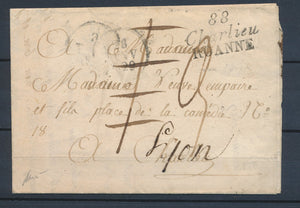 88
Charlieu
ROANNE
A Madame
Madame Veuve
et fils place de la comédie No
18
A Lyon